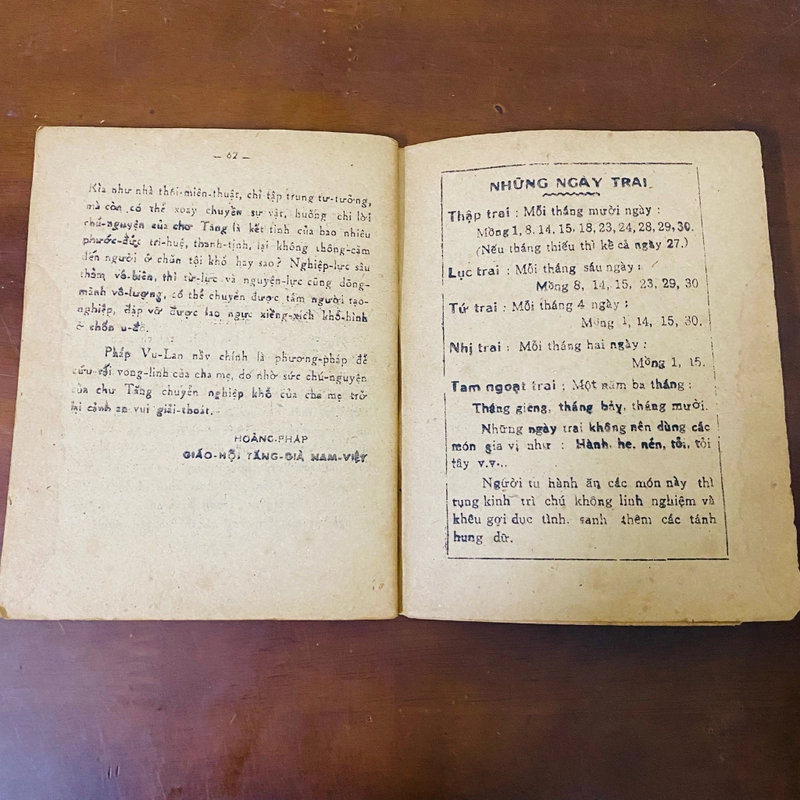 — 62 —
Kìa như nhà thôi-miên-thuật, chỉ tập trung tư-tưởng,
mà còn có thể xoay chuyển sự vật, huống chi lời
chú-nguyện của chư Tăng là kết tinh của bao nhiêu
phước-đức trí-huệ, thanh-tịnh, lại không thông-cảm
đến người ở chốn tội khổ hay sao? Nghiệp-lực sâu
thẳm vô-biên, thì từ-lực và nguyện-lực cũng dõng-
mãnh vô-lượng, có thể chuyển được tâm người tạo-
nghiệp, đập vỡ được lao ngục xiềng-xích khổ-hình
ở chốn u-đồ.
Pháp Vu-Lan nầy chính là phương-pháp để
cứu-rỗi vong-linh của cha mẹ, do nhờ sức chú-nguyện
của chư Tăng chuyển nghiệp khổ của cha mẹ trở
lại cảnh an vui giải-thoát.
HOẰNG-PHÁP
GIÁO-HỘI TĂNG-GIÀ NAM-VIỆT
NHỮNG NGÀY TRAI
Thập trai : Mỗi tháng mười ngày :
Mồng 1, 8, 14, 15, 18, 23, 24, 28, 29, 30.
(Nếu tháng thiếu thì kể cả ngày 27.)
Lục trai : Mỗi tháng sáu ngày :
Mồng 8, 14, 15, 23, 29, 30
Tứ trai : Mỗi tháng 4 ngày :
Mồng 1, 14, 15, 30.
Nhị trai : Mỗi tháng hai ngày :
Mồng 1, 15.
Tam ngoạt trai : Một năm ba tháng :
Tháng giêng, tháng bảy, tháng mười.
Những ngày trai không nên dùng các
món gia vị như : Hành, hẹ, nén, tỏi, tỏi
tây v.v...
Người tu hành ăn các món này thì
tụng kinh trì chú không linh nghiệm và
khêu gợi dục tình, sanh thêm các tánh
hung dữ.